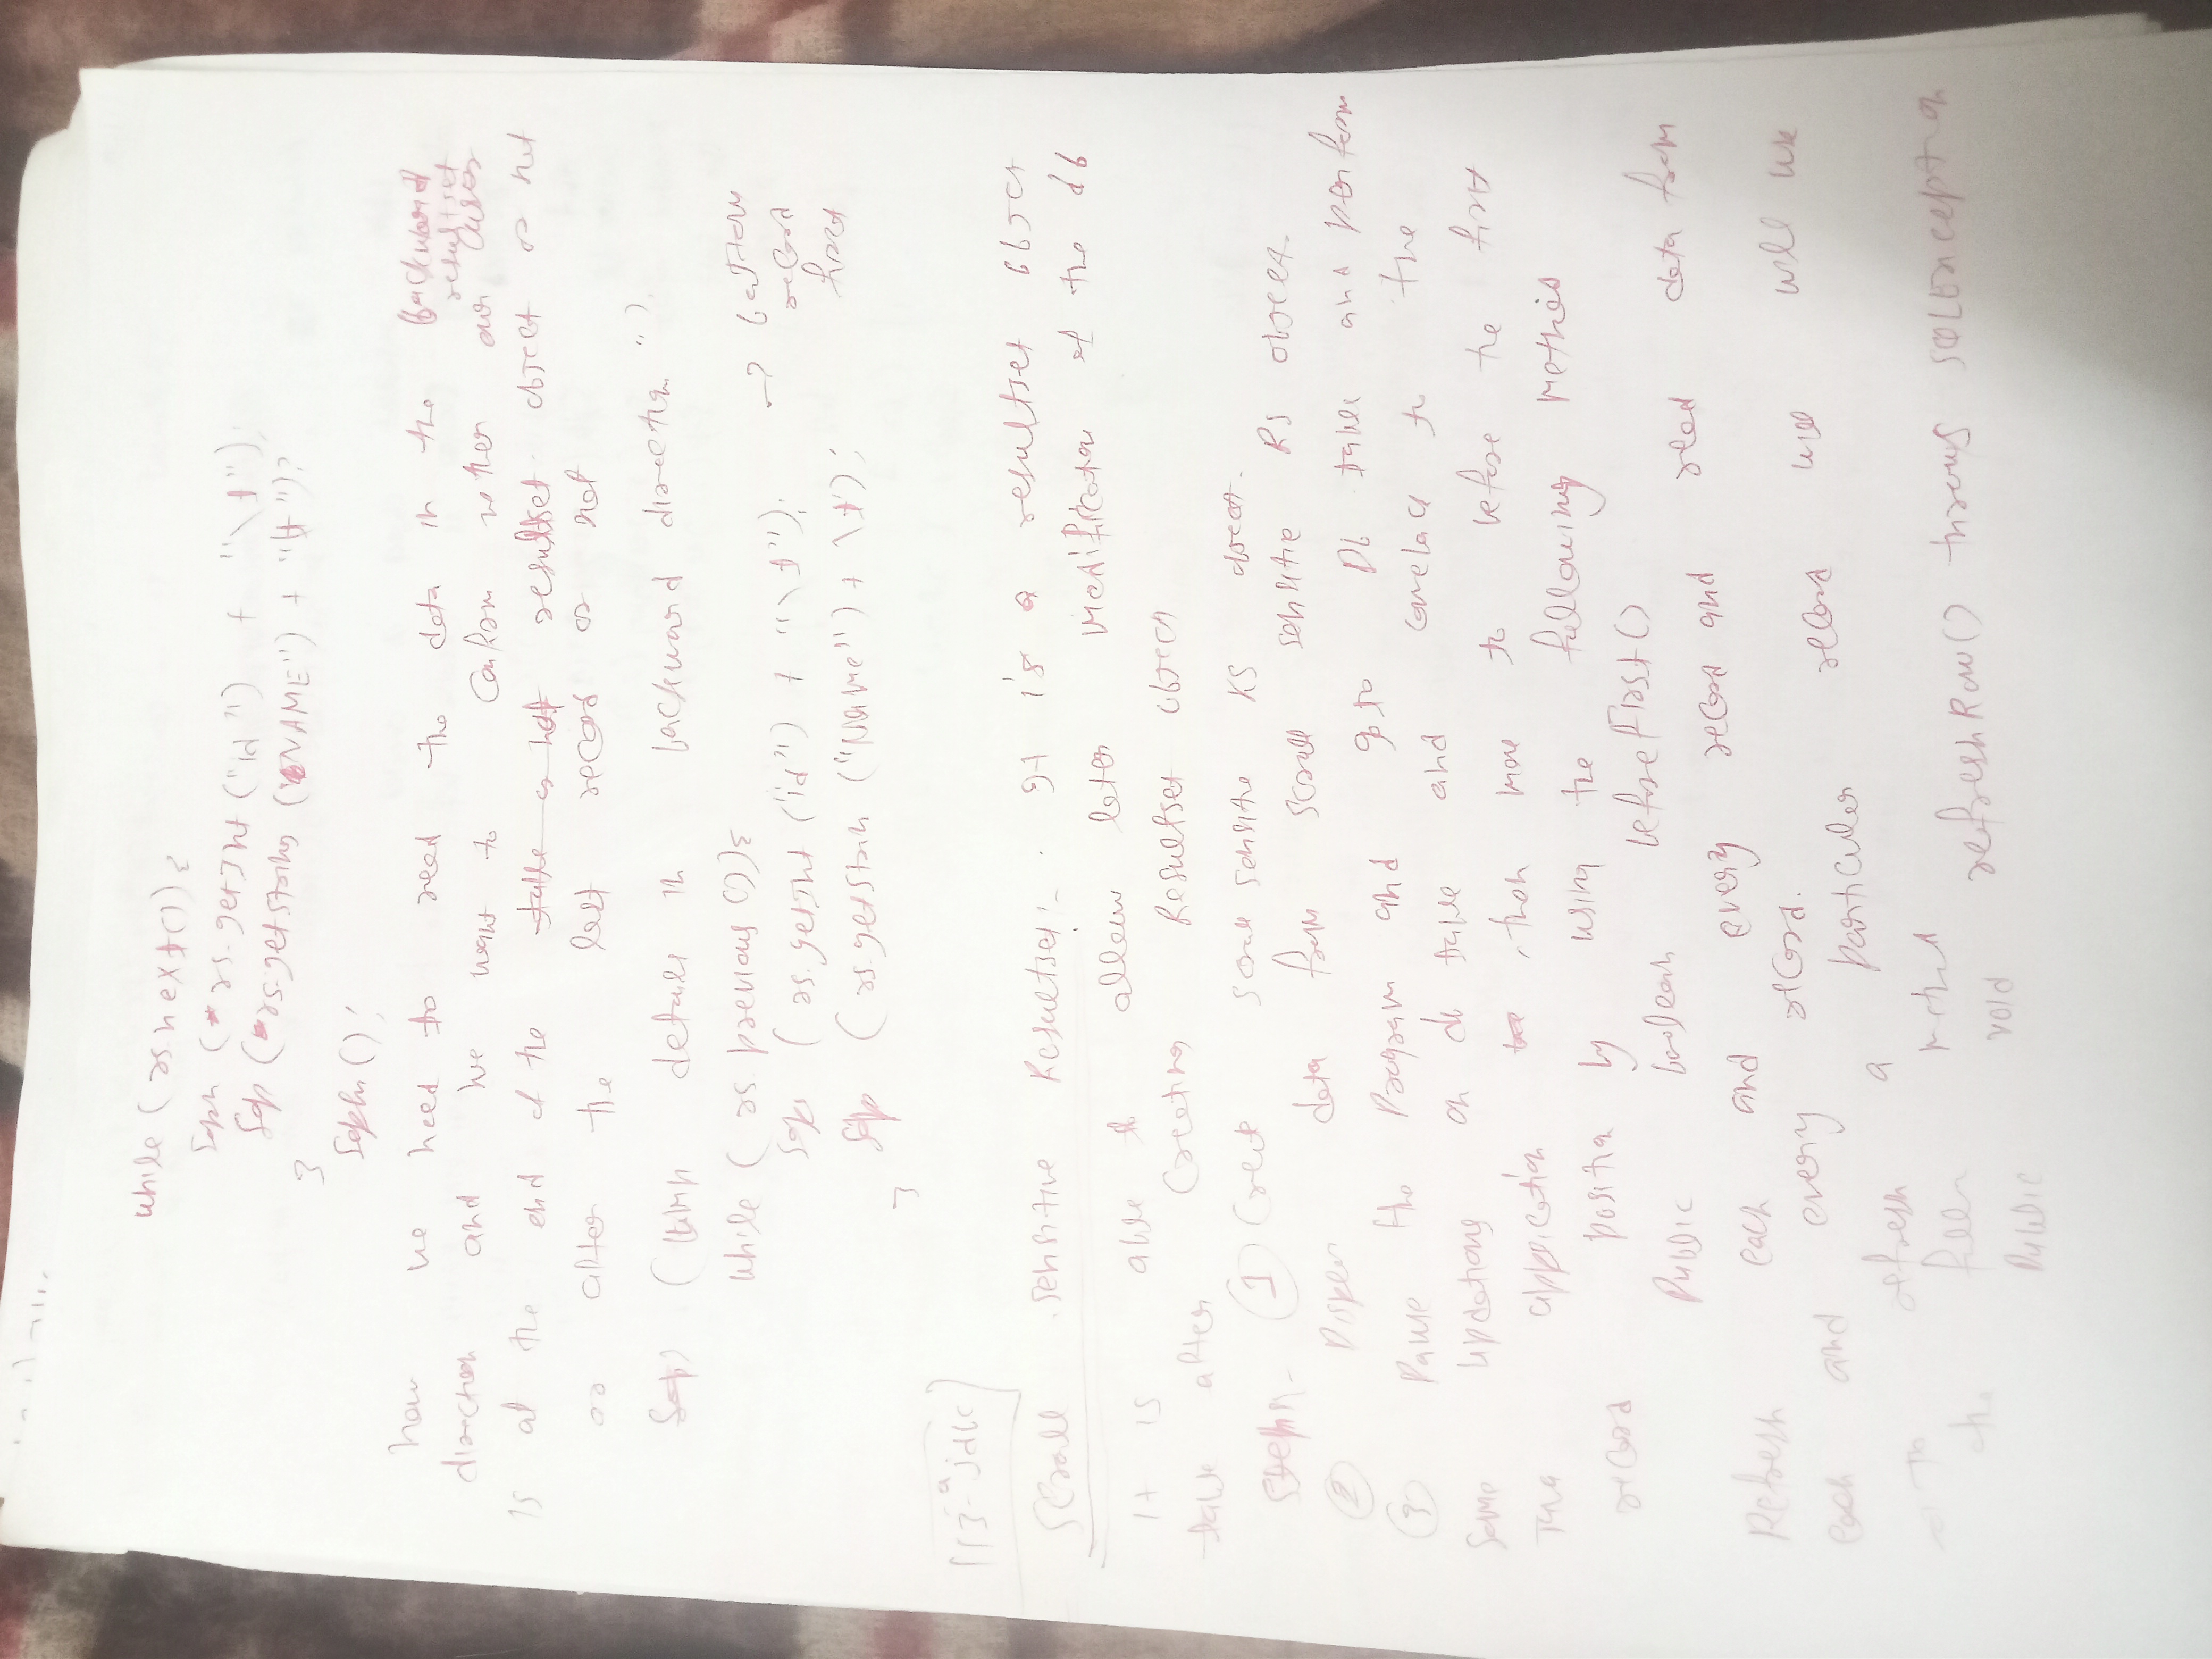 while ( rs.next()) {
Sopln ( rs.getInt ("id") + "\t");
Sop ( rs.getString ("NAME") + "\t");
}
Sopln ();
now we need to read the data in the backward
direction and we want to confirm wether our resultset cursor
is at the end of the table or not resultset object or not
or after the last record or not
Sop ( details in backward direction ");
while ( rs.previous ()) {
Sop ( rs.getInt ("id") + "\t"); → bottom record first
Sop ( rs.getStrin ("Name") + \t");
}
113-jdbc
Scroll sensitive Resultset:- It is a resultset object
It is able to allow later modification of the db
table after creating Resultset object
Steps:- ① Creat scroll sensitive RS object.
② Display data from scroll sensitive RS object.
③ Pause the program and go to Db table and perform
some updations on db table and comeback to the
Java application , then move to before the first
record position by using the following method
Public boolean beforeFirst()
Refresh each and every record and read data from
each and every record.
→ To refresh a particular record we will use
the method
Public void refreshRow() throws SQLException